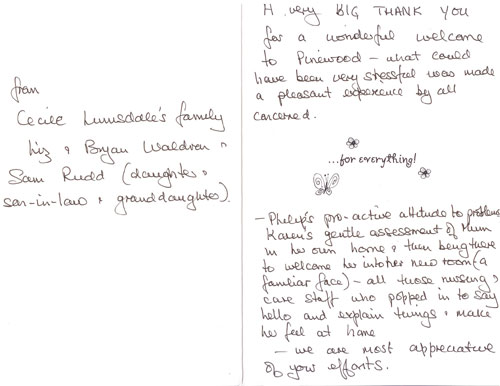 from
Cecile Lumsdale's family
Liz & Bryan Waldren &
Sam Rudd (daughter,
son-in-law & granddaughter).
A very BIG THANK YOU
for a wonderful welcome
to Pinewood - what could
have been very stressful was made
a pleasant experience by all
concerned.
...for everything!
- Philip's pro-active attitude to problems
Karen's gentle assessment of Mum
in her own home & then being there
to welcome her into her new room (a
familiar face) - all those nursing &
care staff who popped in to say
hello and explain things & make
her feel at home
- we are most appreciative
of your efforts.